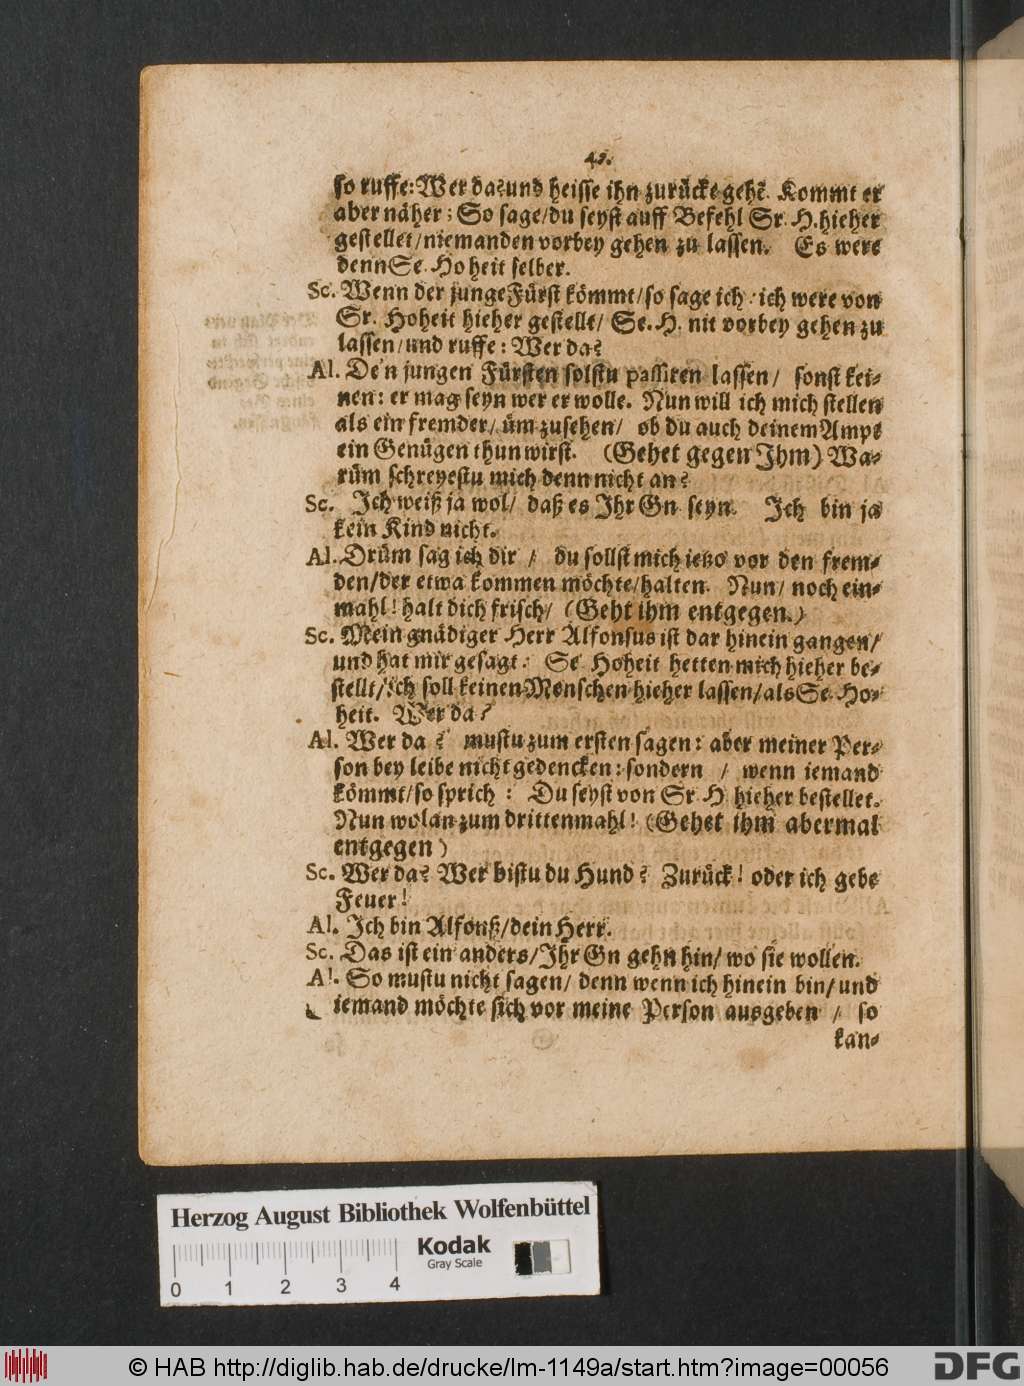 42.
so ruffe: Wer da? und heisse ihn zurücke gehẽ. Kommt er
aber näher; So sage/ du seyst auff Befehl Sr. H. hieher
gestellet/ niemanden vorbey gehen zu lassen. Es were
denn Se. Hoheit selber.
Sc. Wenn der junge Fürst kömmt/ so sage ich: ich were von
Sr. Hoheit hieher gestellt/ Se. H. nit vorbey gehen zu
lassen/ und ruffe: Wer da?
Al. Den jungen Fürsten solstu passiren lassen/ sonst kei-
nen: er mag seyn wer er wolle. Nun will ich mich stellen
als ein fremder/ üm zusehen/ ob du auch deinem Ampt
ein Genügen thun wirst. (Gehet gegen Ihm) Wa-
rüm schreyestu mich denn nicht an?
Sc. Ich weiß ja wol/ daß es Ihr Gn seyn. Ich bin ja
kein Kind nicht.
Al. Drüm sag ich dir / du sollst mich ietzo vor den frem-
den/ der etwa kommen möchte/ halten. Nun/ noch ein-
mahl! halt dich frisch/ (Geht ihm entgegen.)
Sc. Mein gnädiger Herr Alfonsus ist dar hinein gangen/
und hat mir gesagt: Se Hoheit hetten mich hieher be-
stellt/ ich soll keinen Menschen hieher lassen/ als Se. Ho-
heit. Wer da?
Al. Wer da? mustu zum ersten sagen: aber meiner Per-
son bey leibe nicht gedencken: sondern / wenn iemand
kömmt/ so sprich: Du seyst von Sr H hieher bestellet.
Nun wolan zum dritten mahl! (Gehet ihm abermal
entgegen)
Sc. Wer da? Wer bistu du Hund? Zurück! oder ich gebe
Feuer!
Al. Ich bin Alfonß/ dein Herr.
Sc. Das ist ein anders/ Ihr Gn gehn hin/ wo sie wollen.
Al. So mustu nicht sagen/ denn wenn ich hinein bin/ und
iemand möchte sich vor meine Person ausgeben / so
kan-
Herzog August Bibliothek Wolfenbüttel
Kodak
Gray Scale
0 1 2 3 4
© HAB http://diglib.hab.de/drucke/lm-1149a/start.htm?image=00056
DFG